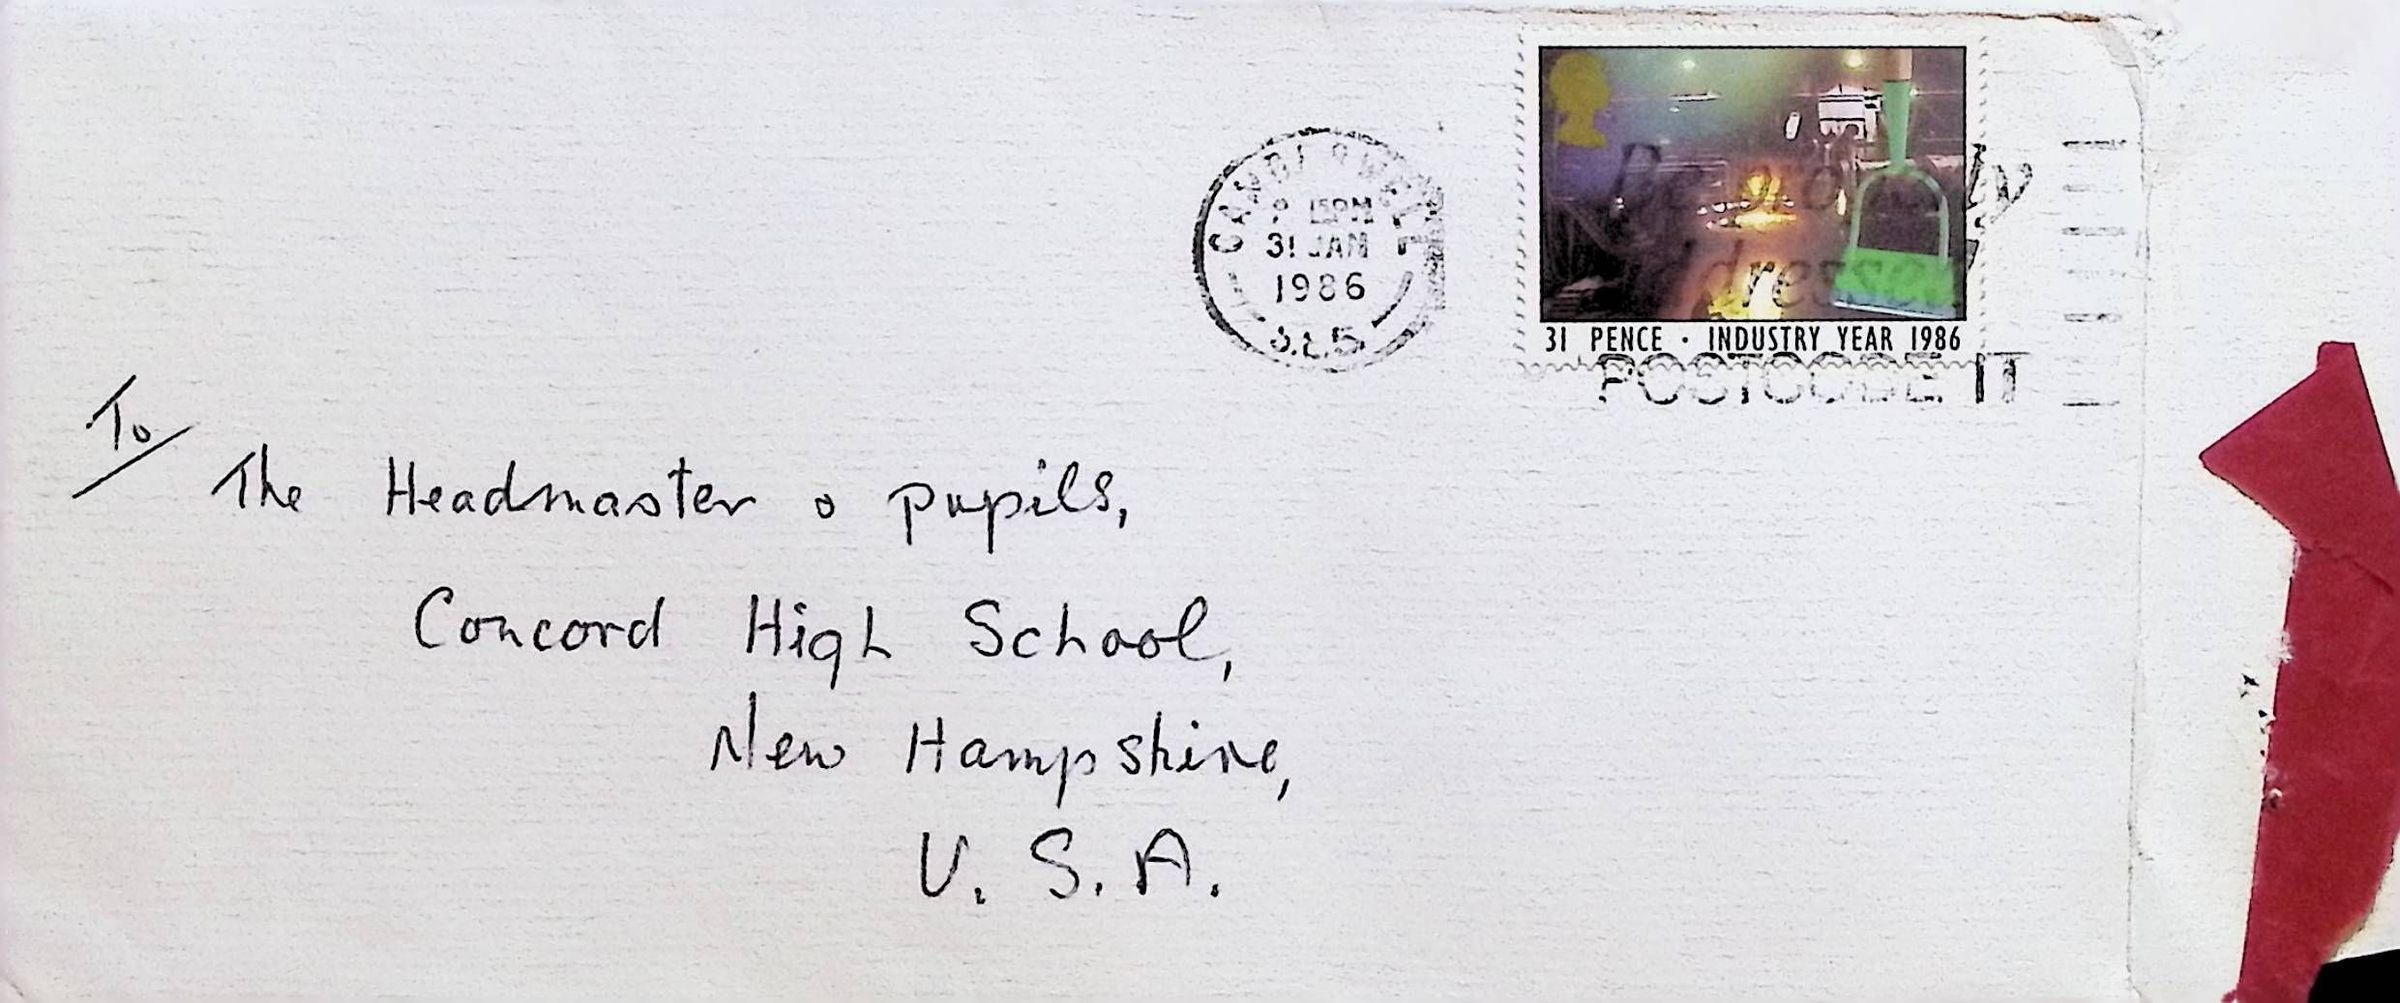 CAMBERWELL
PM
31 JAN
1986
S.E.5
Be properly
addressed
POSTCODE IT
31 PENCE · INDUSTRY YEAR 1986
To
The Headmaster & pupils,
Concord High School,
New Hampshire,
U. S. A.